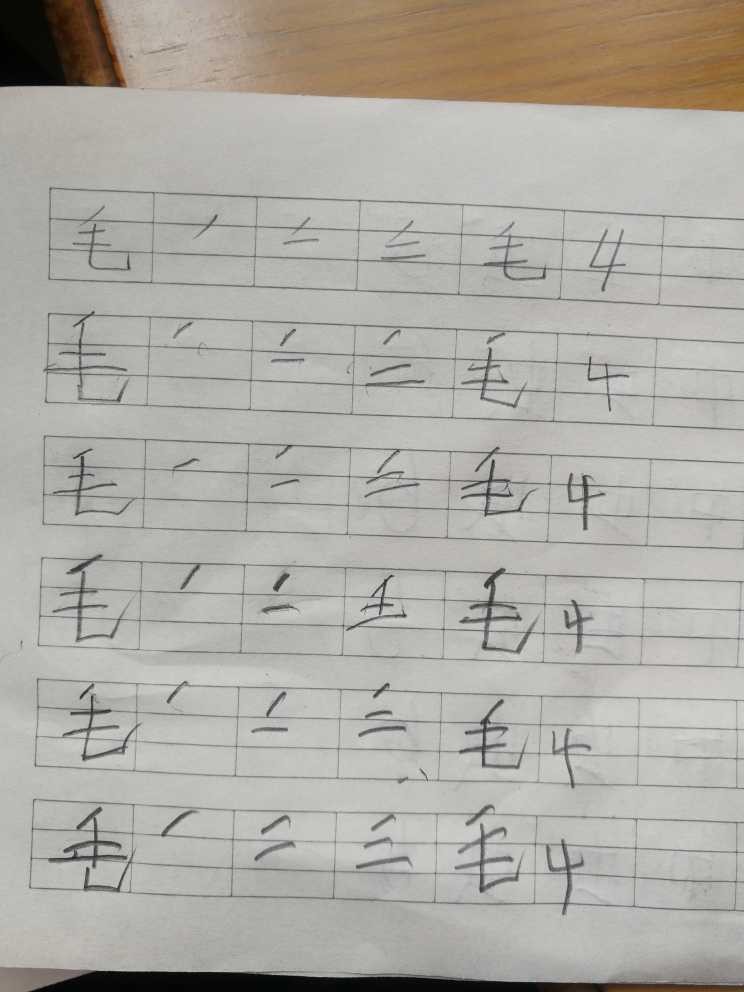 毛 ㇒ 二 三 毛 4
毛 ㇒ 二 三 毛 4
毛 ㇒ 二 三 毛 4
毛 ㇒ 二 毛 4
毛 ㇒ 二 三 毛 4
毛 ㇒ 二 三 毛 4